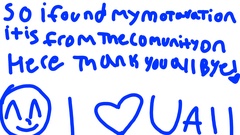 so i found my motavation
it is from the comunity on
Here thank you all Bye!
I ♡ U All